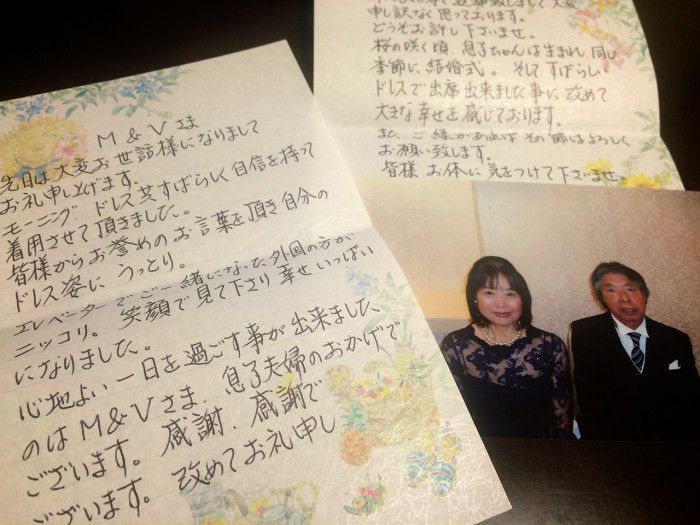 M & V さま
先日は大変お世話様になりまして
お礼申し上げます。
モーニング、ドレス共すばらしく自信を持って
着用させて頂きました。
皆様からお誉めのお言葉を頂き自分の
ドレス姿に うっとり。
エレベーターでご一緒になった外国の方が
ニッコリ。笑顔で見て下さり 幸せいっぱい
になりました。
心地よい一日を過ごす事が出来ました
のは M & V さま、息子夫婦のおかげで
ございます。感謝、感謝で
ございます。改めてお礼申し
致しまして大変
申し訳なく思っております。
どうぞお許し下さいませ。
桜の咲く頃、息子ちゃんは生まれ、同じ
季節に結婚式。そして すばらしい
ドレスで出席出来ました事に 改めて
大きな幸せを感じております。
また、ご縁があれば その節はよろしく
お願い致します。
皆様 お体に気をつけて下さいませ。